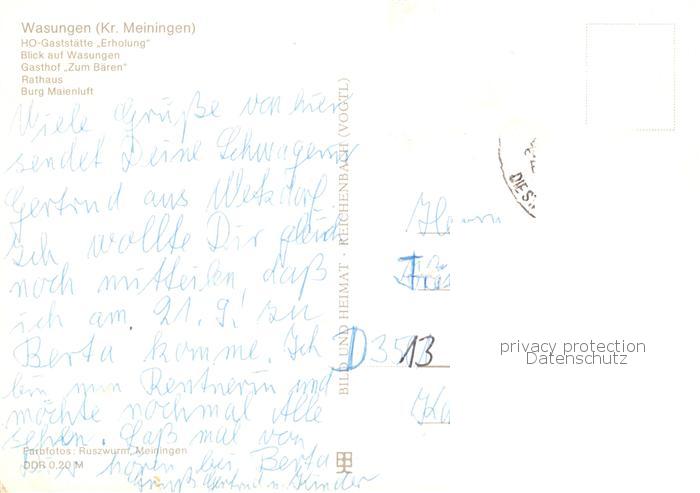 Wasungen (Kr. Meiningen)
HO-Gaststätte „Erholung"
Blick auf Wasungen
Gasthof „Zum Bären"
Rathaus
Burg Maienluft
Viele Grüße von hier
sendet Deine Schwägerin
Gertrud aus
Ich wollte Dir gleich
noch mitteilen, daß
ich am. 21. 9. zu
Berta komme. Ich
bin nun Rentnerin und
möchte nochmal Alle
sehen. Laß mal von
Dir hören bei Berta
Gruß Gertrud u. Kinder
Farbfotos: Ruszwurm, Meiningen
DDR 0,20 M
BILD UND HEIMAT · REICHENBACH (VOGTL)
DIES
Herrn
D 35 13
Ka
privacy protection
Datenschutz